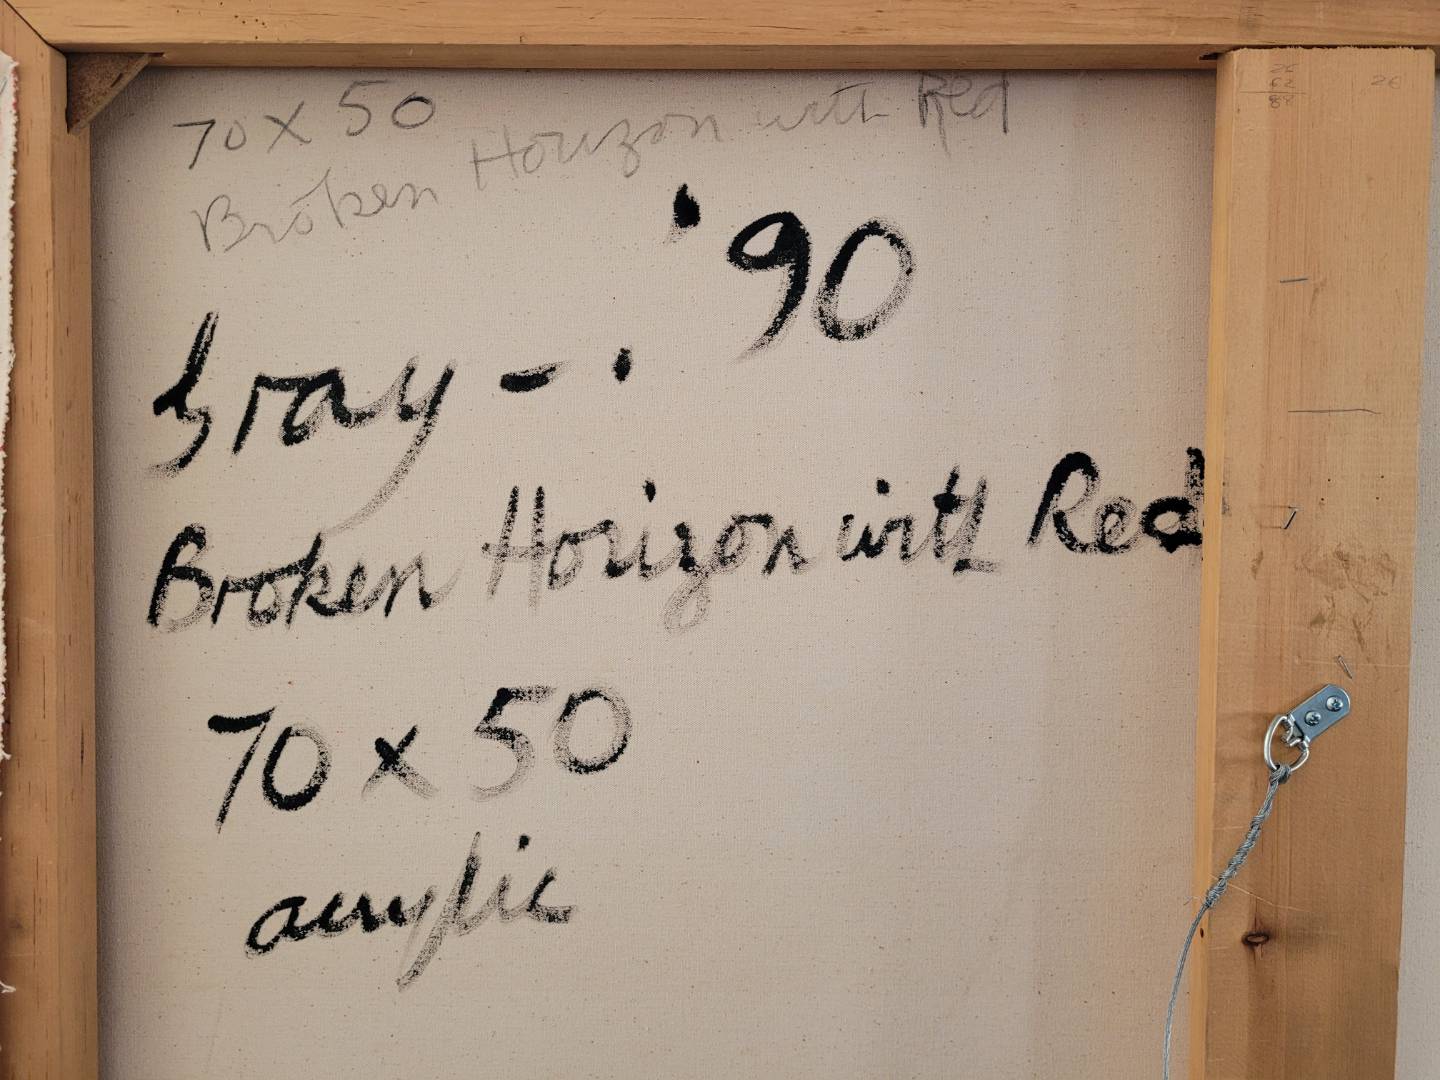 70 x 50
Broken Horizon with Red
'90
Gray - .
Broken Horizon with Red
70 x 50
acrylic
26
62
88
26